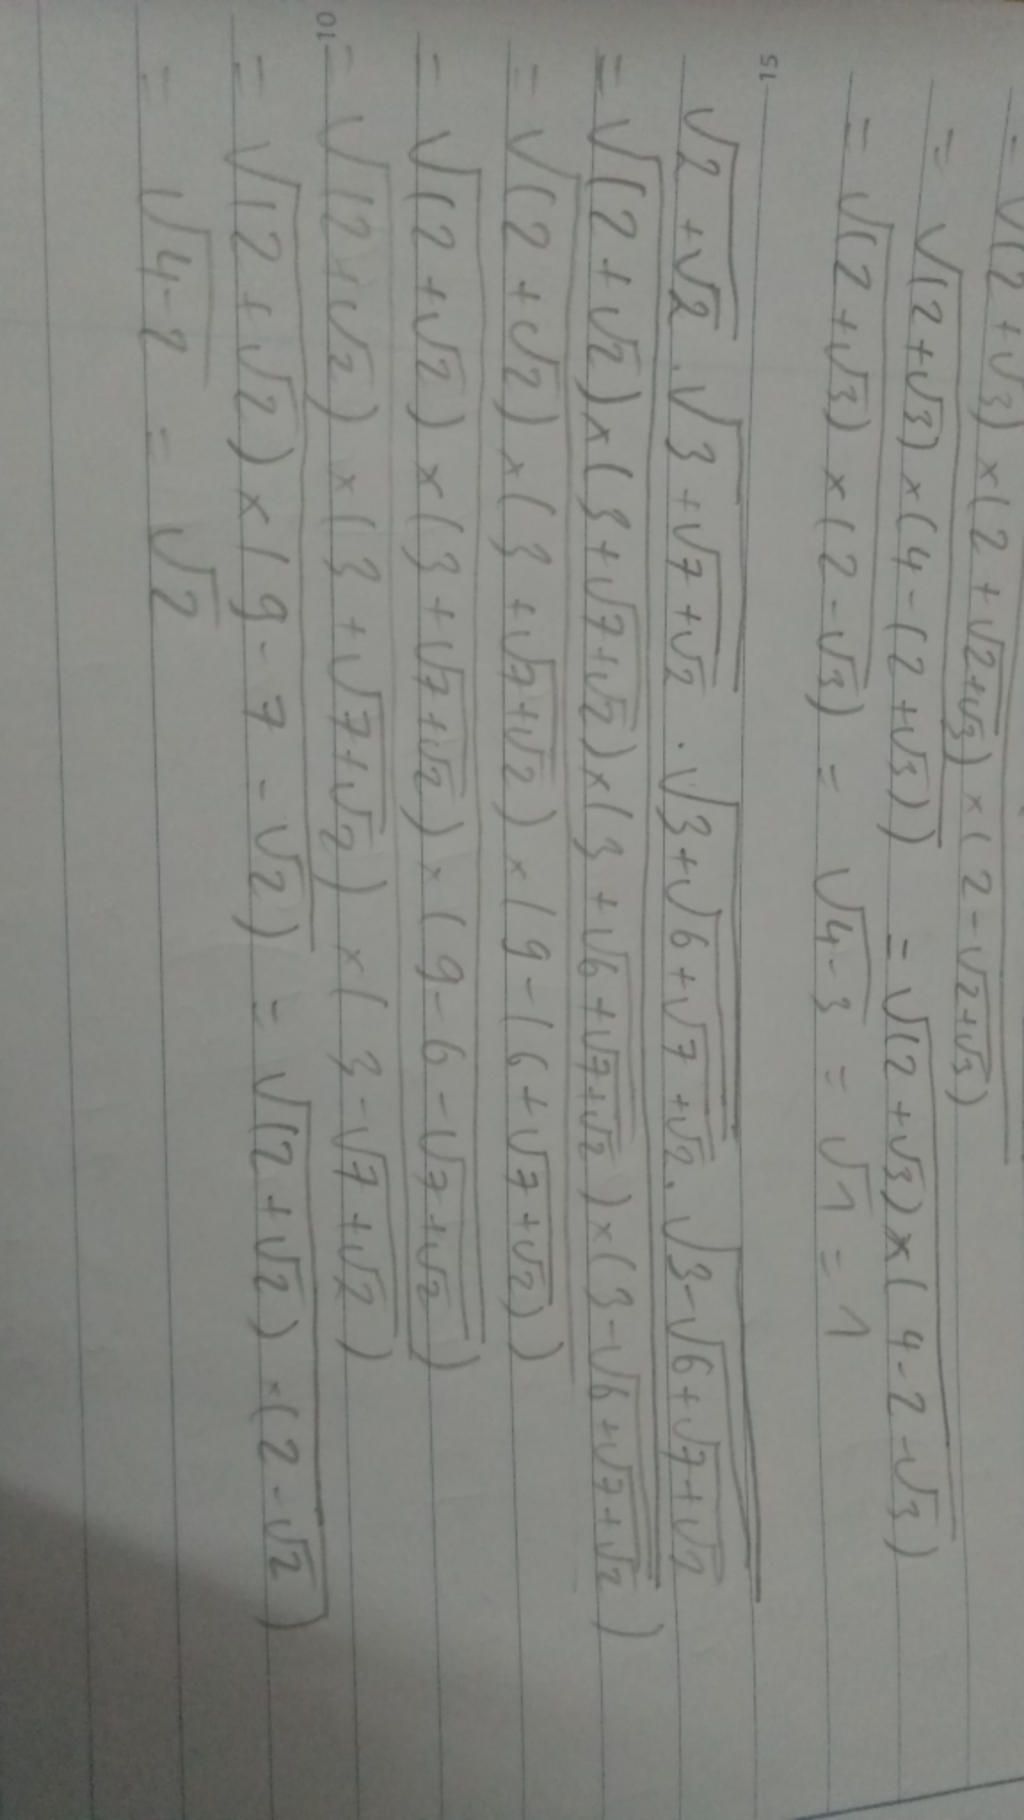 = √(2+√3) × (2+√2+√3) × (2-√2+√3)
= √(2+√3) × (4-(2+√3)) = √(2+√3) × (4-2-√3)
= √(2+√3) × (2-√3) = √4-3 = √1 = 1
15
√2+√2 . √3+√7+√2 . √3+√6+√7+√2 . √3-√6+√7+√2
= √(2+√2) × (3+√7+√2) × (3+√6+√7+√2) × (3-√6+√7+√2)
= √(2+√2) × (3+√7+√2) × (9-(6+√7+√2))
= √(2+√2) × (3+√7+√2) × (9-6-√7+√2)
10
= √(2+√2) × (3+√7+√2) × (3-√7+√2)
= √(2+√2) × (9-7-√2) = √(2+√2) × (2-√2)
= √4-2 = √2